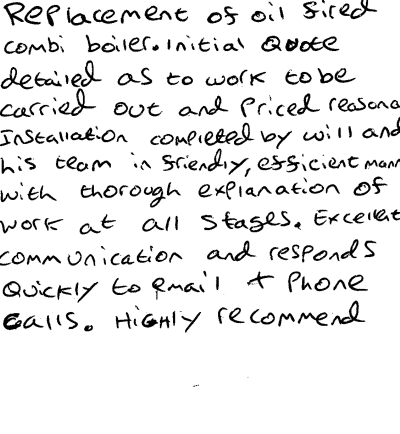 Replacement of oil fired
combi boiler. Initial Quote
detailed as to work to be
carried out and Priced reasona
Installation completed by will and
his team in friendly, efficient mann
with thorough explanation of
work at all stages. Excellent
communication and responds
Quickly to Email + Phone
Calls. Highly recommend